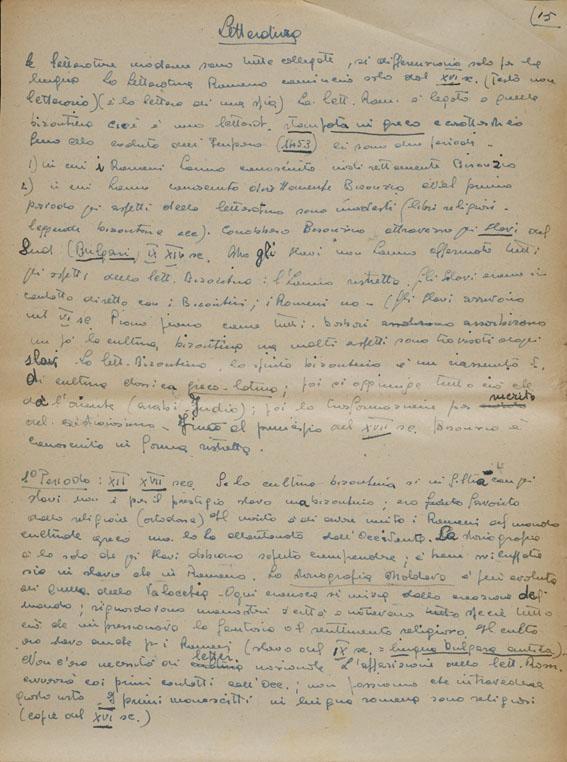 (15
Letteratura
Le letterature moderne sono tutte collegate, si differenziano solo per la
lingua. La Letteratura Romena comincia solo dal XVI sec. (Testo non
letterario) (è la lettera di una spia) La lett. Rom. è legata a quella
bizantina cioè è una letterat. stampata in greco e
fino alla caduta dell'Impero (1453) ci sono due periodi.
1) in cui i Romeni hanno conosciuto indirettamente Bisanzio
2) in cui hanno conosciuto direttamente Bisanzio. Nel primo
periodo gli aspetti della letteratura sono modesti (libri religiosi -
leggende bizantine ecc). Conobbero Bisanzio attraverso gli Slavi del
Sud (Bulgari, IX XIV sec. Ma gli slavi non hanno affermato tutti
gli aspetti della lett. Bizantina: l'hanno ristretta. Gli Slavi erano in
contatto diretto con i Bizantini; i Romeni no - (gli slavi arrivano
nel VI sec. Piano piano come tutti i barbari assorbirono
un po' la cultura bizantina ma molti aspetti sono trovati dagli
slavi. La lett. Bizantina lo spirito bizantino è un riassunto
di cultura classica greco-latina; poi si aggiunge tutto ciò che
dà l'oriente (arabi India); poi la trasformazione per merito
del cristianesimo - Fino al principio del XVII sec. Bisanzio è
conosciuto in forma ristretta.
1° Periodo: XII XVII sec. Se la cultura bizantina si infiltra con gli
slavi non è per il prestigio slavo ma bizantino; era favorito
dalla religione (ortodossa) Il merito è di avere unito i Romeni al mondo
culturale greco ma lo ha allontanato dall'Occidente. La storiografia
è la sola che gli slavi abbiano saputo comprendere, e bene
sia in slavo che in Romeno. La storiografia Moldava è più evoluta
di quella della Valacchia. Ogni cronaca si inizia dalla creazione del
mondo; riguardavano monasteri e città e notavano tutto
ciò che impressionava la fantasia o il sentimento religioso. Il culto
era slavo anche per i Romeni (slavo del IX sec. = lingua bulgara antica).
Non c'era necessità di letter. nazionale. L'apparizione della lett. Rom.
avverrà coi primi contatti coll'Occ.; non possiamo che intravedere
questo. I primi manoscritti in lingua romena sono religiosi
(copie del XVI sec.)